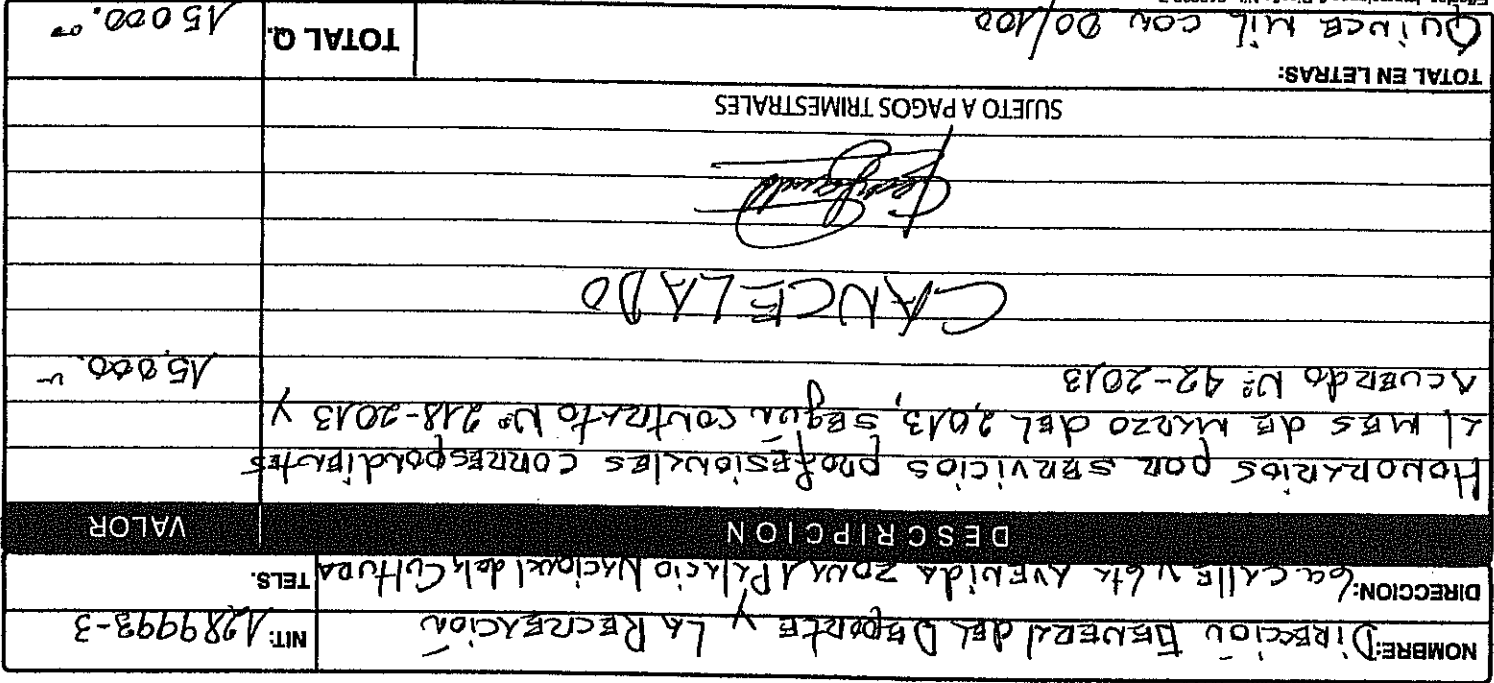 NOMBRE: Dirección General del Deporte y La Recreación NIT: 1289998-3
DIRECCION: 6a calle y 6ta Avenida zona 1 Palacio Nacional de la Cultura TELS.
DESCRIPCION VALOR
Honorarios por servicios profesionales correspondientes
al mes de marzo del 2,013, según contrato Nº 218-2013 y
Acuerdo Nº 42-2013 15,000.
CANCELADO
SUJETO A PAGOS TRIMESTRALES
TOTAL EN LETRAS:
Quince mil con 00/100 TOTAL Q. 15 000.00